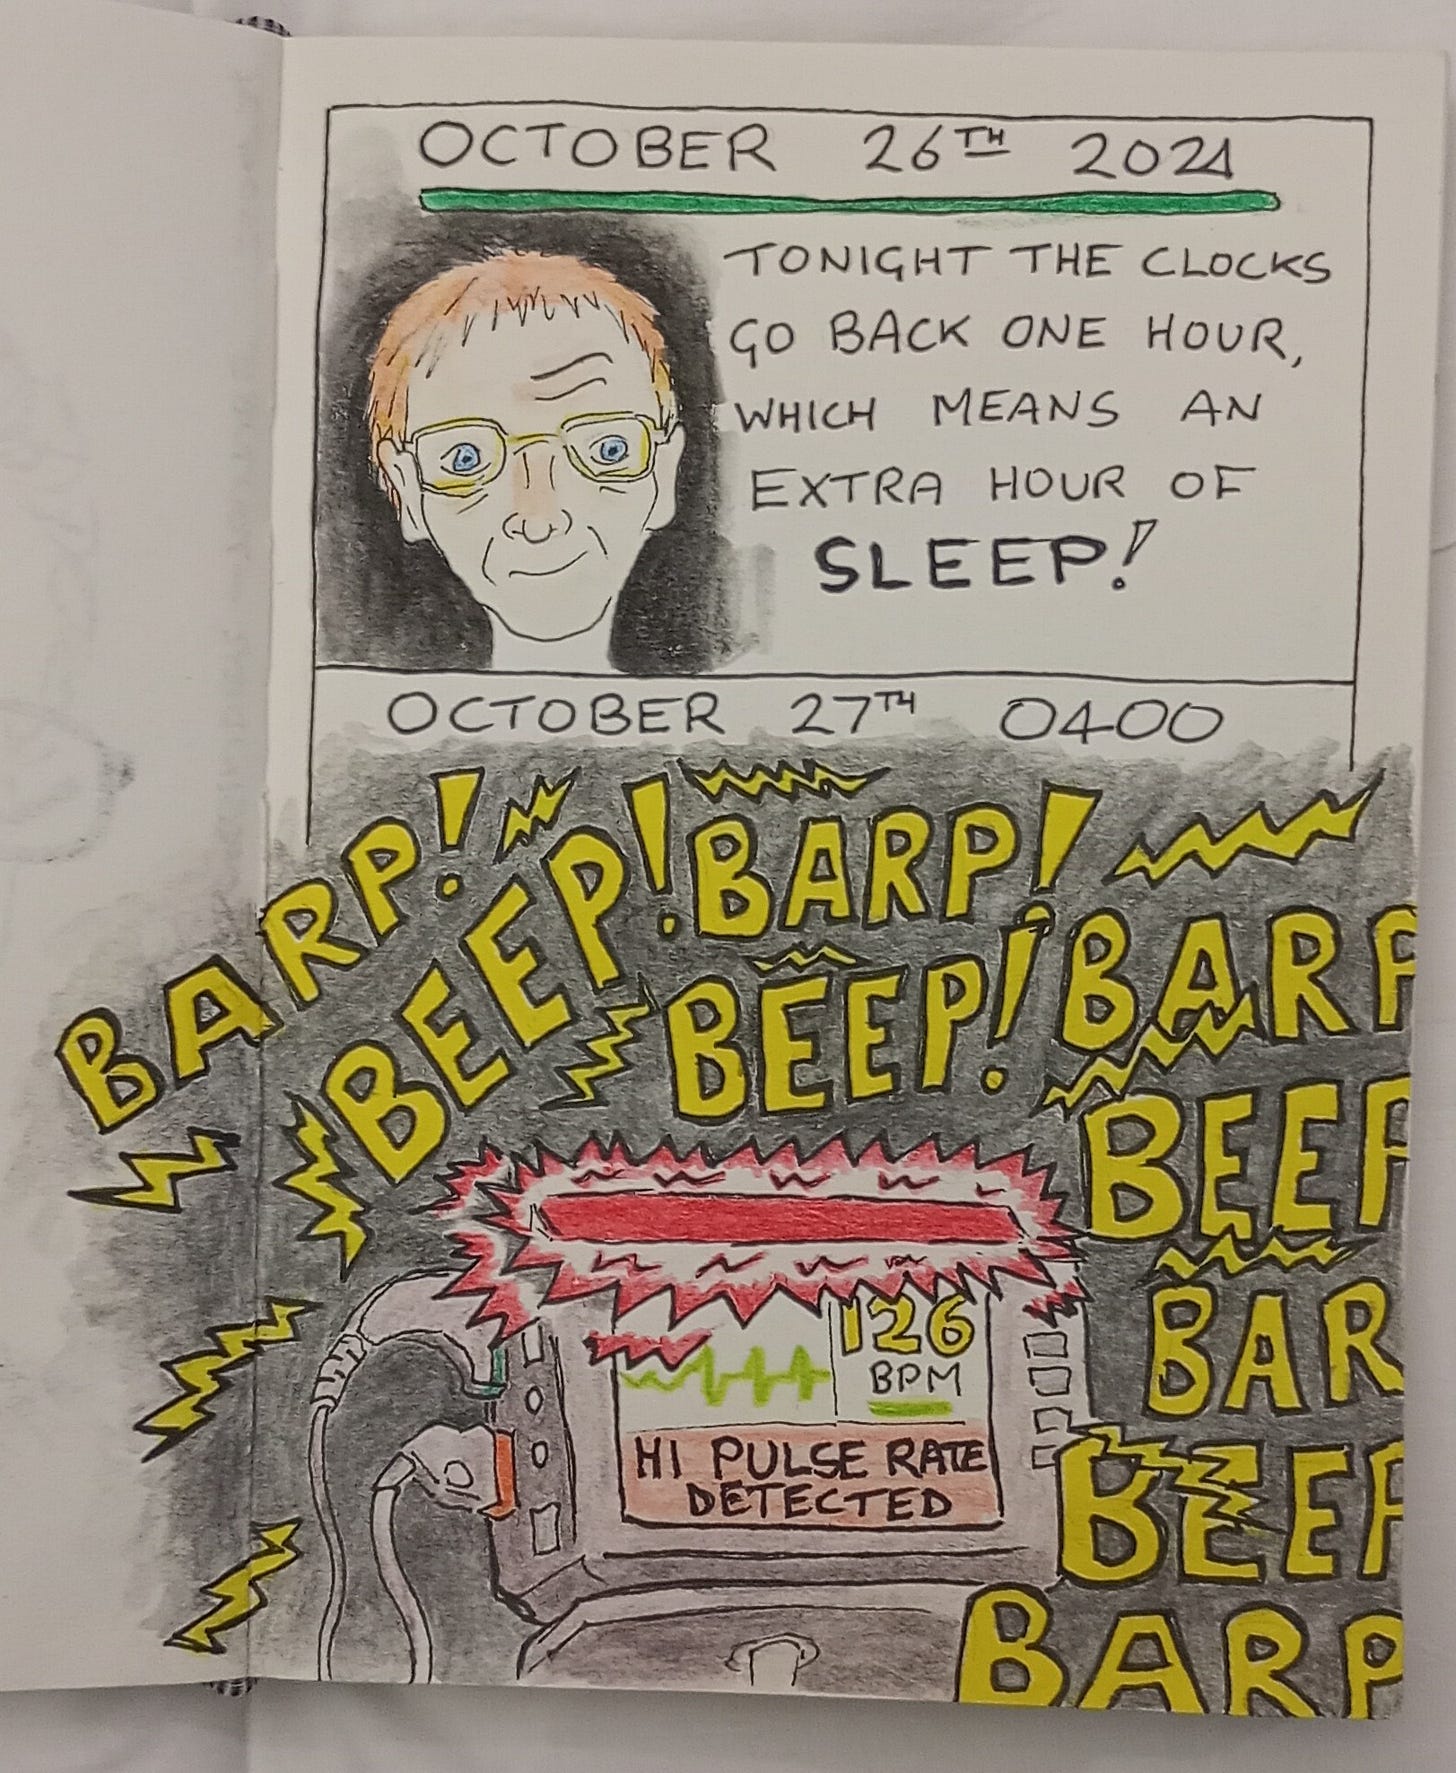 OCTOBER 26TH 2024
TONIGHT THE CLOCKS
GO BACK ONE HOUR,
WHICH MEANS AN
EXTRA HOUR OF
SLEEP!
OCTOBER 27TH 0400
BARP!
BEEP!
BARP!
BEEP!
BARP
BEEP
BAR
BEEP
BARP
126
BPM
HI PULSE RATE
DETECTED